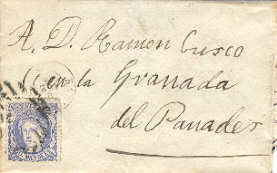 A. D. Ramon Cusco
en la Granada
del Panades